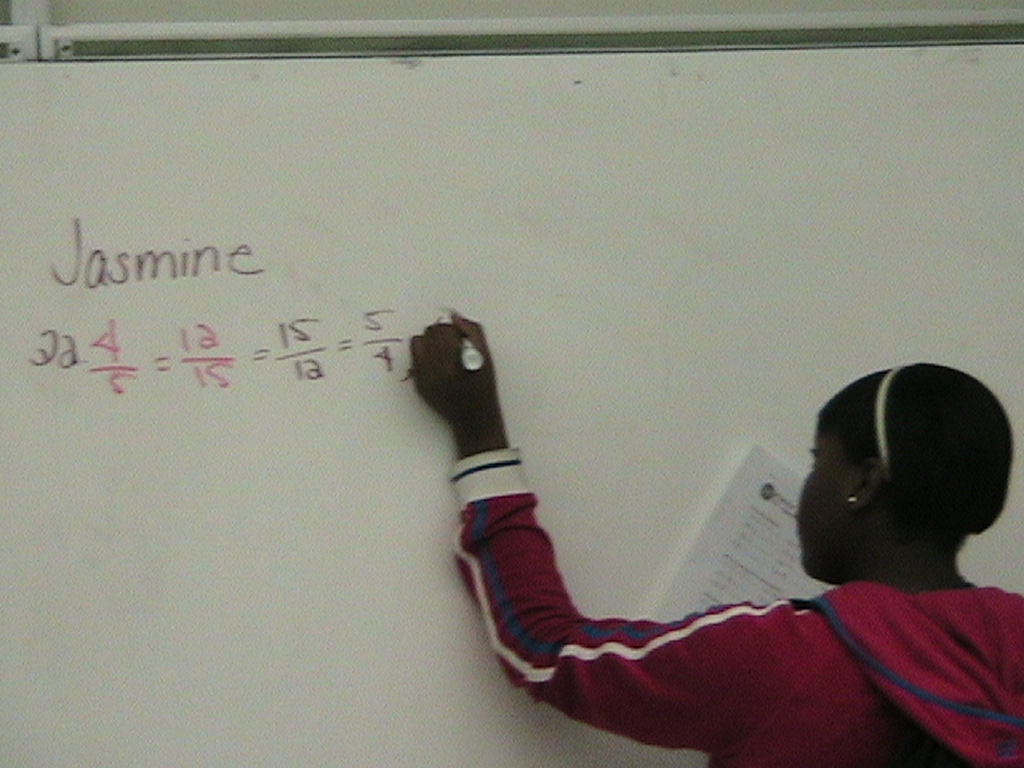 Jasmine
22. 4/5 = 12/15 = 15/12 = 5/4,